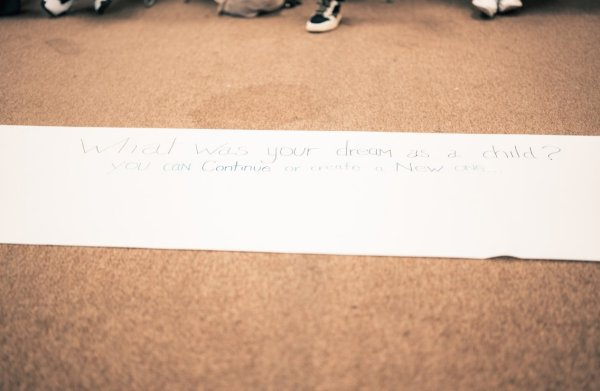 What was your dream as a child?
you can Continue or create a New one...